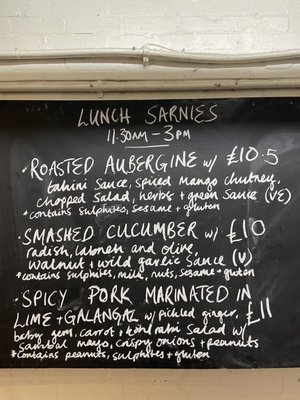 LUNCH SARNIES
11.30AM - 3PM
• ROASTED AUBERGINE w/ £10.5
tahini sauce, spiced mango chutney,
chopped salad, herbs + green sauce (VE)
* contains sulphites, sesame + gluten
• SMASHED CUCUMBER w/ £10
radish, labneh and olive,
walnut + wild garlic sauce (V)
* contains sulphites, milk, nuts, sesame + gluten
• SPICY PORK MARINATED IN
LIME + GALANGAL w/ pickled ginger, £11
baby gem, carrot + kohlrabi salad w/
sambal mayo, crispy onions + peanuts
* contains peanuts, sulphites + gluten